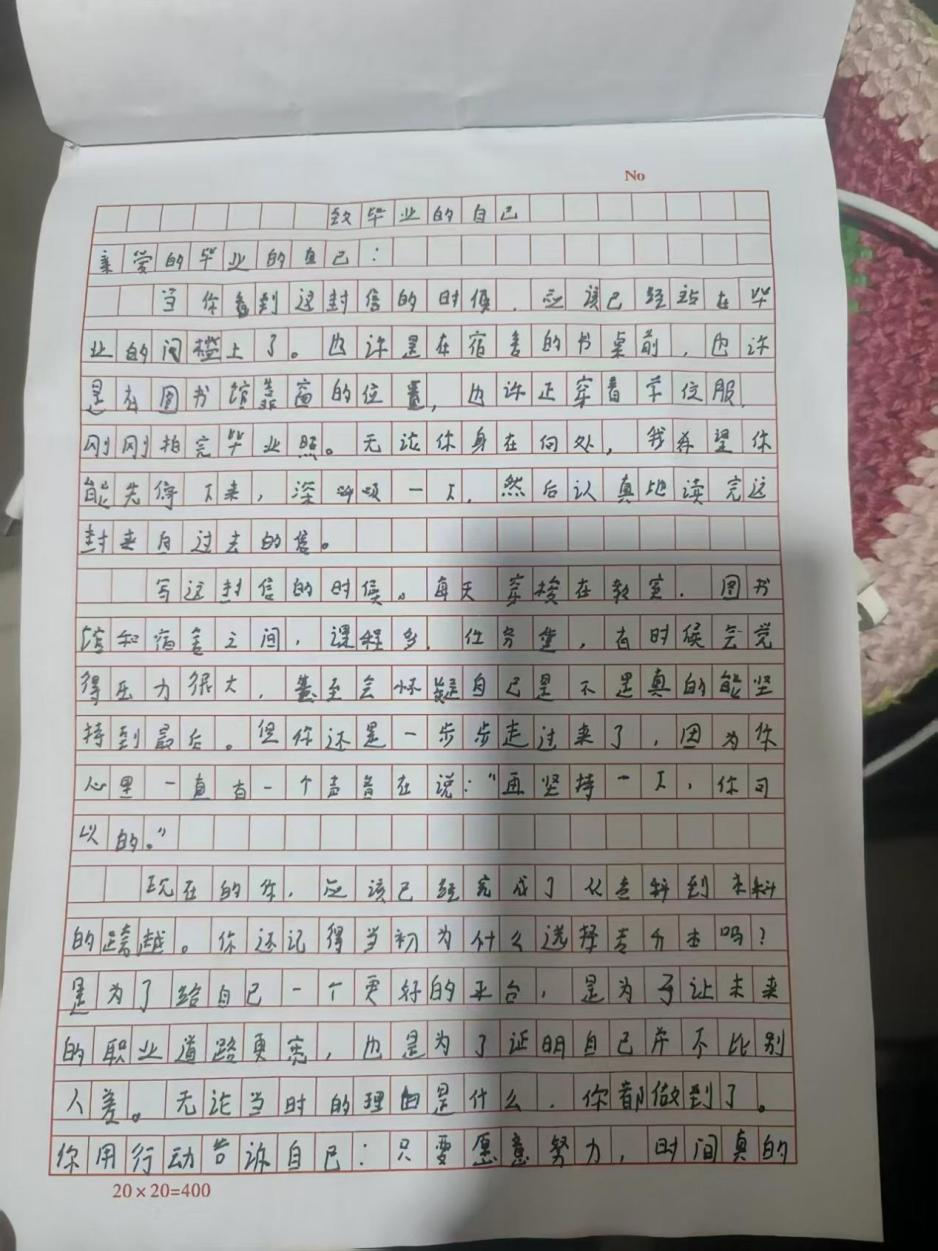 No
致毕业的自己
亲爱的毕业的自己:
当你看到这封信的时候,应该已经站在毕
业的门槛上了。也许是在宿舍的书桌前,也许
是在图书馆靠窗的位置,也许正穿着学位服,
刚刚拍完毕业照。无论你身在何处,我希望你
能先停下来,深呼吸一下,然后认真地读完这
封来自过去的信。
写这封信的时候。每天穿梭在教室、图书
馆和宿舍之间,课程多,任务重,有时候会觉
得压力很大,甚至会怀疑自己是不是真的能坚
持到最后。但你还是一步步走过来了,因为你
心里一直有一个声音在说:“再坚持一下,你可
以的。”
现在的你,应该已经完成了从专科到本科
的跨越。你还记得当初为什么选择专升本吗?
是为了给自己一个更好的平台,是为了让未来
的职业道路更宽,也是为了证明自己并不比别
人差。无论当时的理由是什么,你都做到了。
你用行动告诉自己:只要愿意努力,时间真的
20×20=400